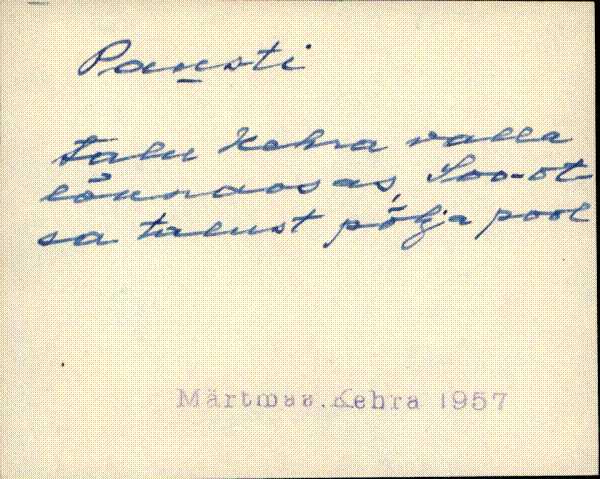 Paunsti
talu Kehra valla
lõunaosas, Soo-ot-
sa talust põhja pool
Märtmaa. Kehra 1957